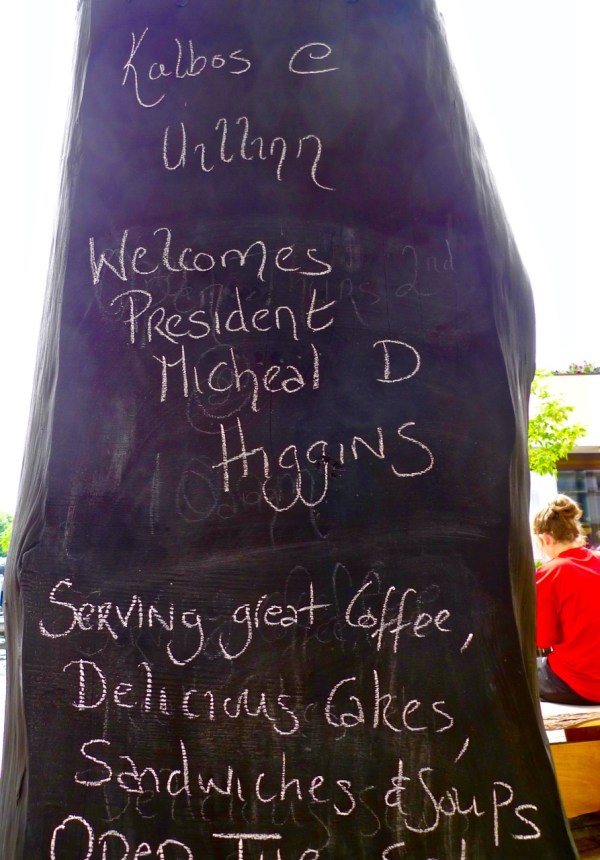 Kalbos @
Uillinn
Welcomes
President
Micheal D
Higgins
Serving great Coffee,
Delicious Cakes,
Sandwiches & Soups
Open Tue